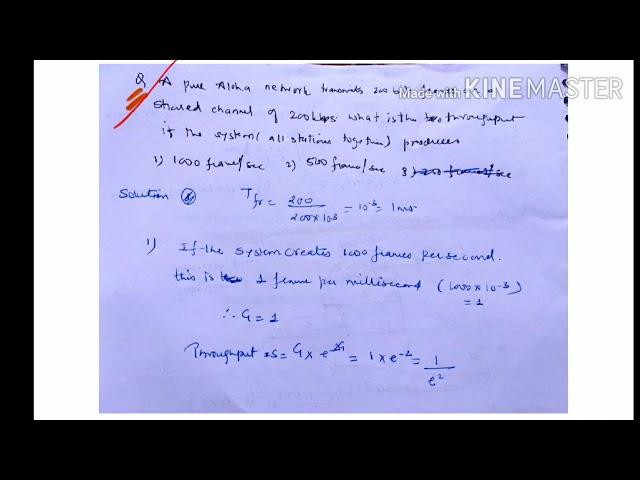 Made with KINEMASTER
Q A pure Aloha network transmits 200 bits
shared channel of 200 kbps what is the throughput
if the system (all stations together) produces
1) 1000 frame/sec 2) 500 frame/sec 3)
Solution Tfr = 200 / 200 x 10³ = 10⁻³ = 1ms
1) If the system creates 1000 frames per second.
this is 1 frame per millisecond (1000 x 10⁻³) = 1
∴ G = 1
Throughput S = G x e⁻²ᴳ = 1 x e⁻² = 1 / e²